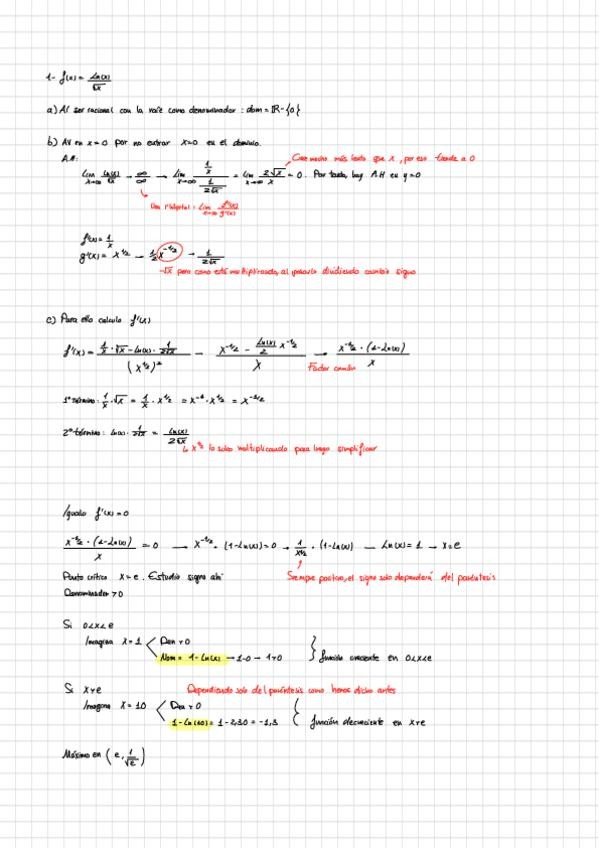 1- f(x) = Ln(x)/√x
a) Al ser racional con la raíz como denominador : dom = ℝ-{0}
b) AV en x=0 por no entrar x=0 en el dominio.
A.H:
Crece mucho más lento que x, por eso tiende a 0
Lim x→∞ Ln(x)/√x → ∞/∞ → Lim x→∞ (1/x)/(1/2√x) = Lim x→∞ 2√x/x = 0. Por tanto, hay A.H en y=0
Uso l'Hôpital: Lim x→∞ f'(x)/g'(x)
f'(x) = 1/x
g'(x) = x^1/2 → 1/2 x^-1/2 → 1/2√x
-√x pero como está multiplicando, al pasarlo dividiendo cambia signo
c) Para ello calculo f'(x)
f'(x) = (1/x · √x - Ln(x) · 1/2√x)/(x^1/2)² → (x^-1/2 - Ln(x)/2 x^-1/2)/x → x^-1/2 · (1-Ln(x))/x
Factor común
1º término: 1/x · √x = 1/x · x^1/2 = x^-1 · x^1/2 = x^-1/2
2º término: Ln(x) · 1/2√x = Ln(x)/2√x
↳ x^1/2 lo subo multiplicando para luego simplificar
Igualo f'(x)=0
x^-1/2 · (1-Ln(x))/x = 0 → x^-1/2 · (1-Ln(x)) = 0 → 1/x^1/2 · (1-Ln(x)) → Ln(x) = 1 → x=e
Punto crítico x=e. Estudio signo ahí
Siempre positivo, el signo solo dependerá del paréntesis
Denominador >0
Si 0<x<e
Imagina x=1 < Den >0
Num = 1-Ln(x) → 1-0 → 1>0 } función creciente en 0<x<e
Si x>e
Dependiendo solo del paréntesis como hemos dicho antes
Imagina x=10 < Den >0
1-Ln(10) = 1-2,30 = -1,3 { función decreciente en x>e
Máximo en (e, 1/√e)